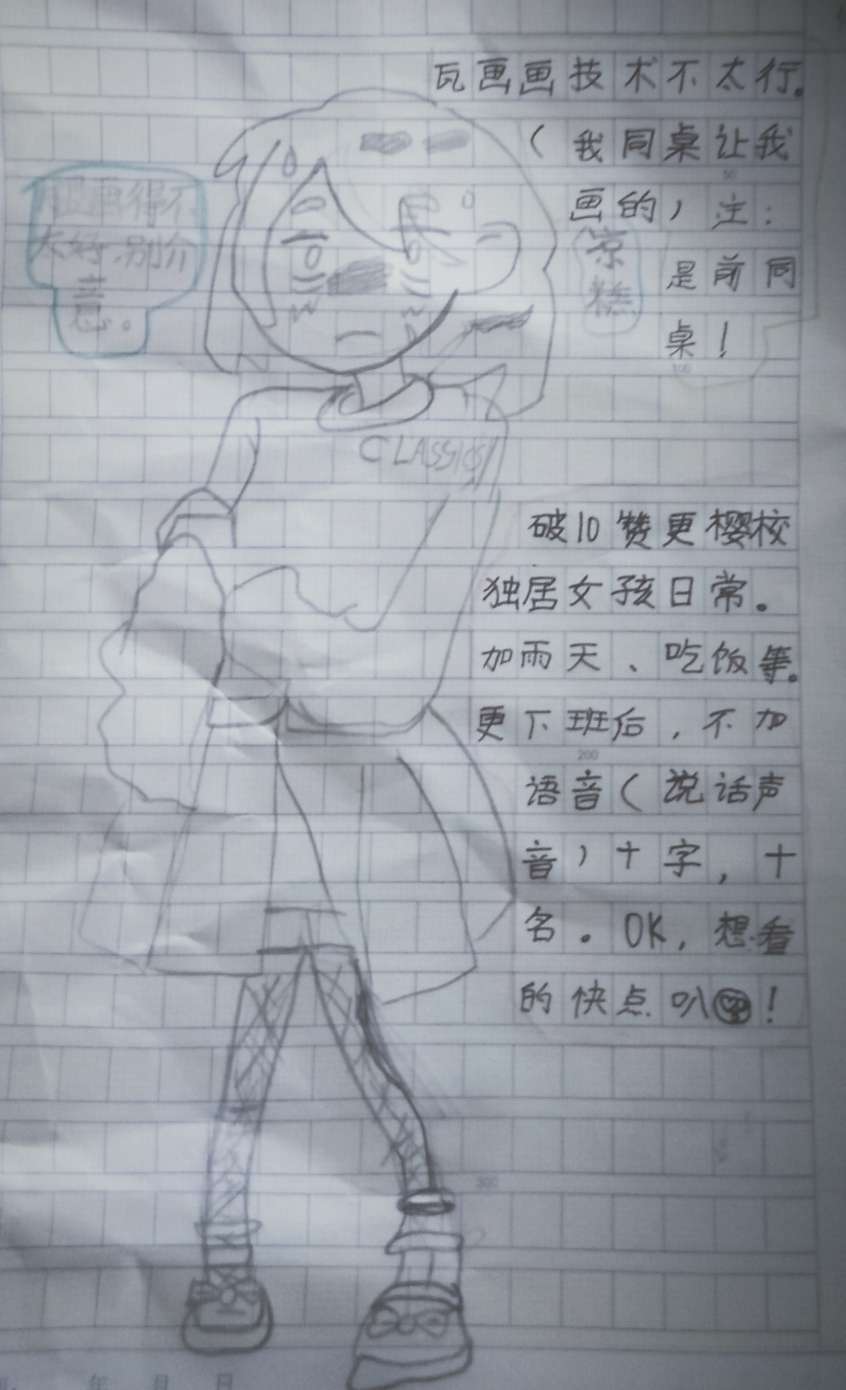 瓦画画技术不太行。
(我同桌让我
画的)主:
是前同
桌!
凉
糕
得不
太好,别介
意。
CLASSICS
破10赞更樱校
独居女孩日常。
加雨天、吃饭等。
更下班后,不加
语音(说话声
音)十字,十
名。OK,想看
的快点叭!
50
100
200
300
年 月 日